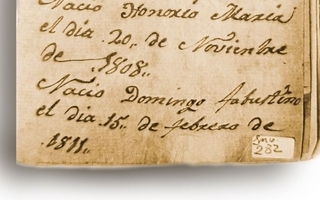 Nacio Honorio Maria
el dia 20,, de Noviembre
de .1808,,
Nacio Domingo Fabustino
el dia .15,, de febrero de
.1811,,
Inv.
282